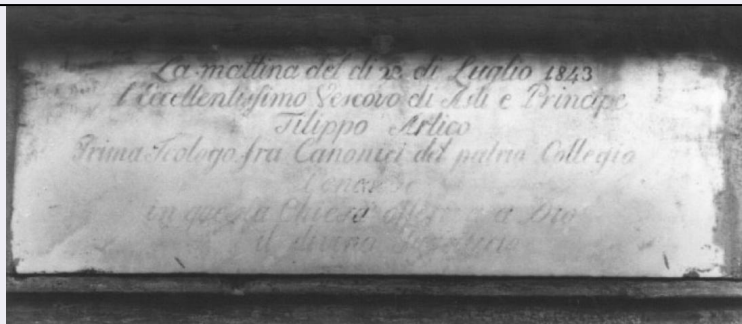 La mattina del di 22 di Luglio 1843
l'Eccellentissimo Vescovo di Asti e Principe
Filippo Artico
Prima Teologo fra Canonici del patrio Collegio
in questa Chiesa a Dio
il divino